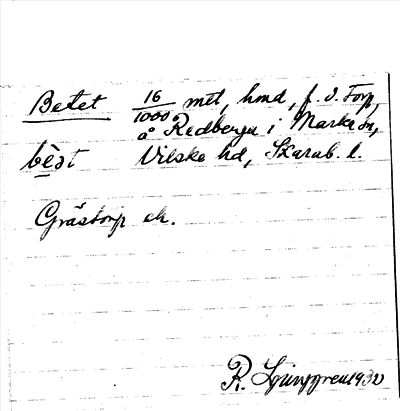 Betet 16/1000 mtl, hmd, f. d. Torp,
å Redberga i Marka sn,
bèət Vilske hd, Skarab. l.
Grästorp ek.
R. Ljunggren 1932